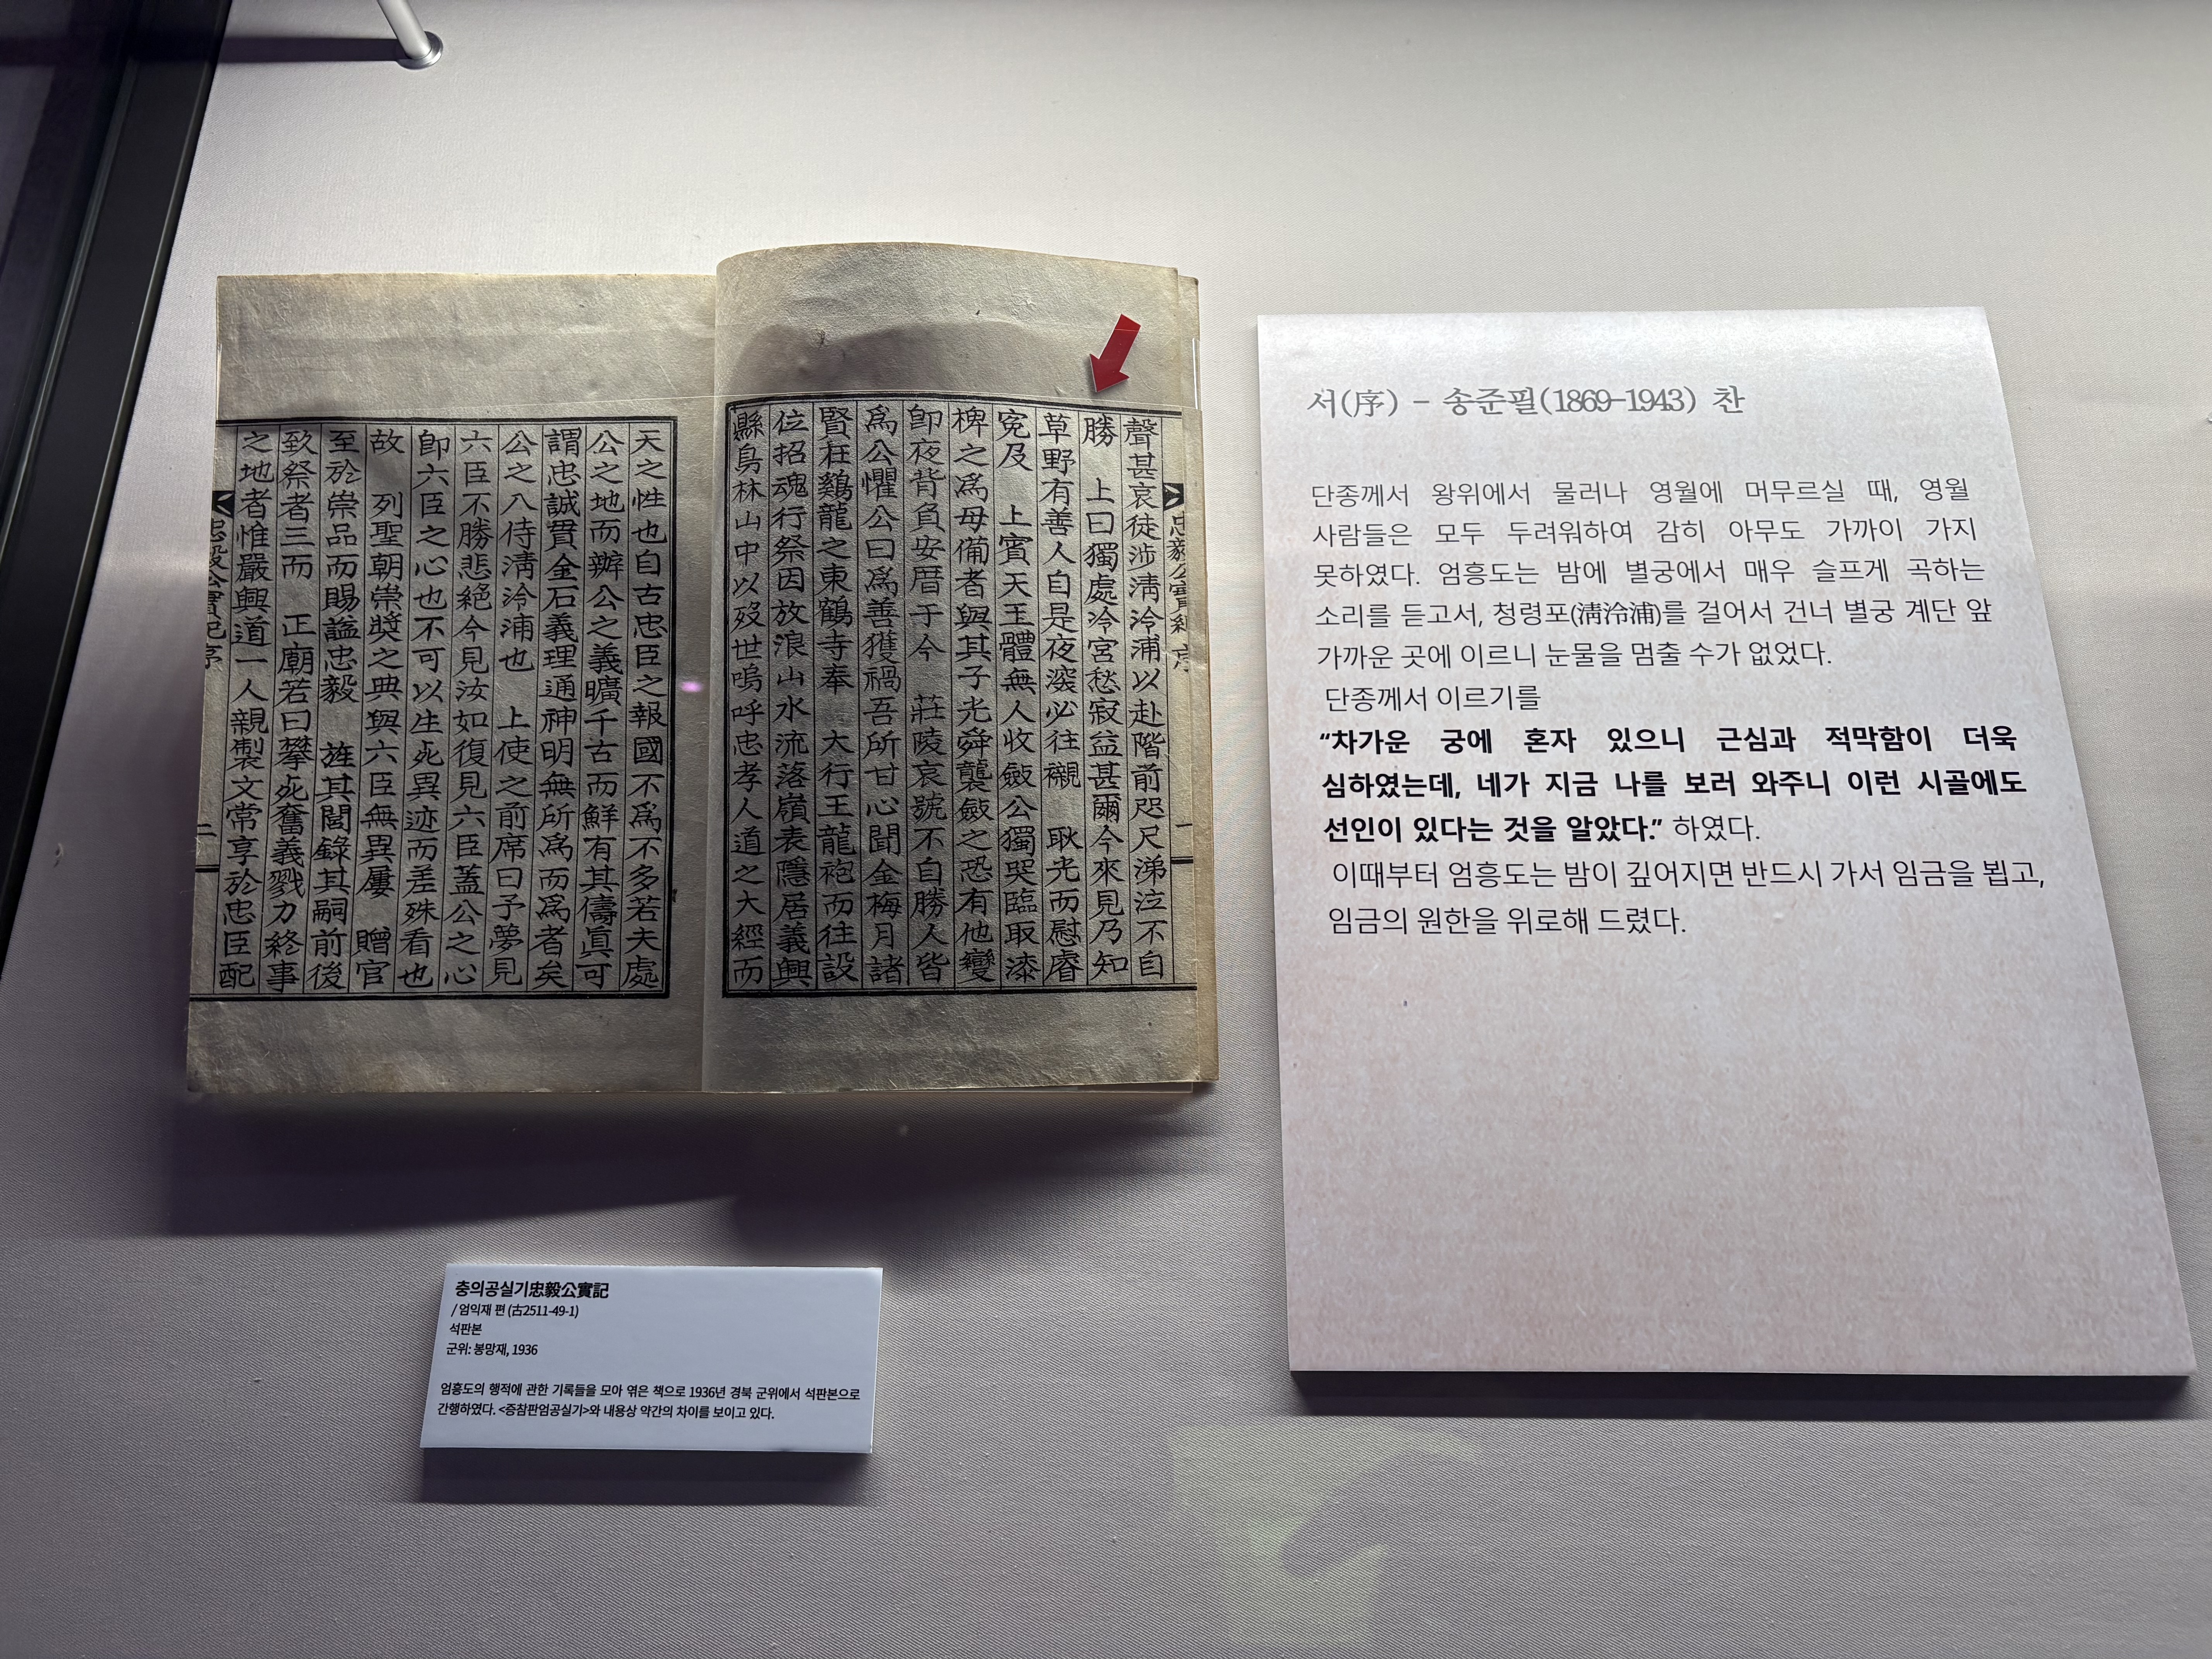 聲甚哀徒涉淸泠浦以赴階前咫尺涕泣不自
勝 上曰獨處冷宮愁寂益甚爾今來見乃知
草野有善人自是夜深必往襯 耿光而慰睿
寃及 上賓天王體無人收斂公獨哭臨取漆
椑之爲母備者與其子光舜襲斂之恐有他變
卽夜背負安厝于今 莊陵哀號不自勝人皆
爲公懼公曰爲善獲禍吾所甘心聞金梅月諸
賢在鷄龍之東鶴寺奉 大行王龍袍而往設
位招魂行祭因放浪山水流落嶺表隱居義興
縣鳥林山中以歿世嗚呼忠孝人道之大經而
天之性也自古忠臣之報國不爲不多若夫處
公之地而辦公之義曠千古而鮮有其儔眞可
謂忠誠貫金石義理通神明無所爲而爲者矣
公之入侍淸泠浦也 上使之前席曰予夢見
六臣不勝悲絶今見汝如復見六臣蓋公之心
卽六臣之心也不可以生死異迹而差殊看也
故 列聖朝崇奬之典與六臣無異屢 贈官
至於崇品而賜謚忠毅 旌其閭錄其嗣前後
致祭者三而 正廟若曰攀死奮義戮力終事
之地者惟嚴興道一人親製文常享於忠臣配
서(序) - 송준필(1869-1943) 찬
단종께서 왕위에서 물러나 영월에 머무르실 때, 영월
사람들은 모두 두려워하여 감히 아무도 가까이 가지
못하였다. 엄흥도는 밤에 별궁에서 매우 슬프게 곡하는
소리를 듣고서, 청령포(淸泠浦)를 걸어서 건너 별궁 계단 앞
가까운 곳에 이르니 눈물을 멈출 수가 없었다.
단종께서 이르기를
“차가운 궁에 혼자 있으니 근심과 적막함이 더욱
심하였는데, 네가 지금 나를 보러 와주니 이런 시골에도
선인이 있다는 것을 알았다.” 하였다.
이때부터 엄흥도는 밤이 깊어지면 반드시 가서 임금을 뵙고,
임금의 원한을 위로해 드렸다.
충의공실기忠毅公實記
/ 엄익재 편 (古2511-49-1)
석판본
군위: 봉망재, 1936
엄흥도의 행적에 관한 기록들을 모아 엮은 책으로 1936년 경북 군위에서 석판본으로
간행하였다. <증참판엄공실기>와 내용상 약간의 차이를 보이고 있다.